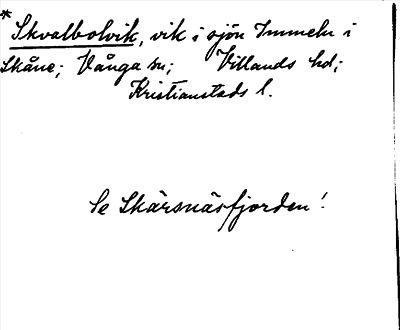 *Skvalbolvik, vik i sjön Immeln i
Skåne; Vånga sn; Villands hd;
Kristianstads l.
Se Skärsnäsfjorden!